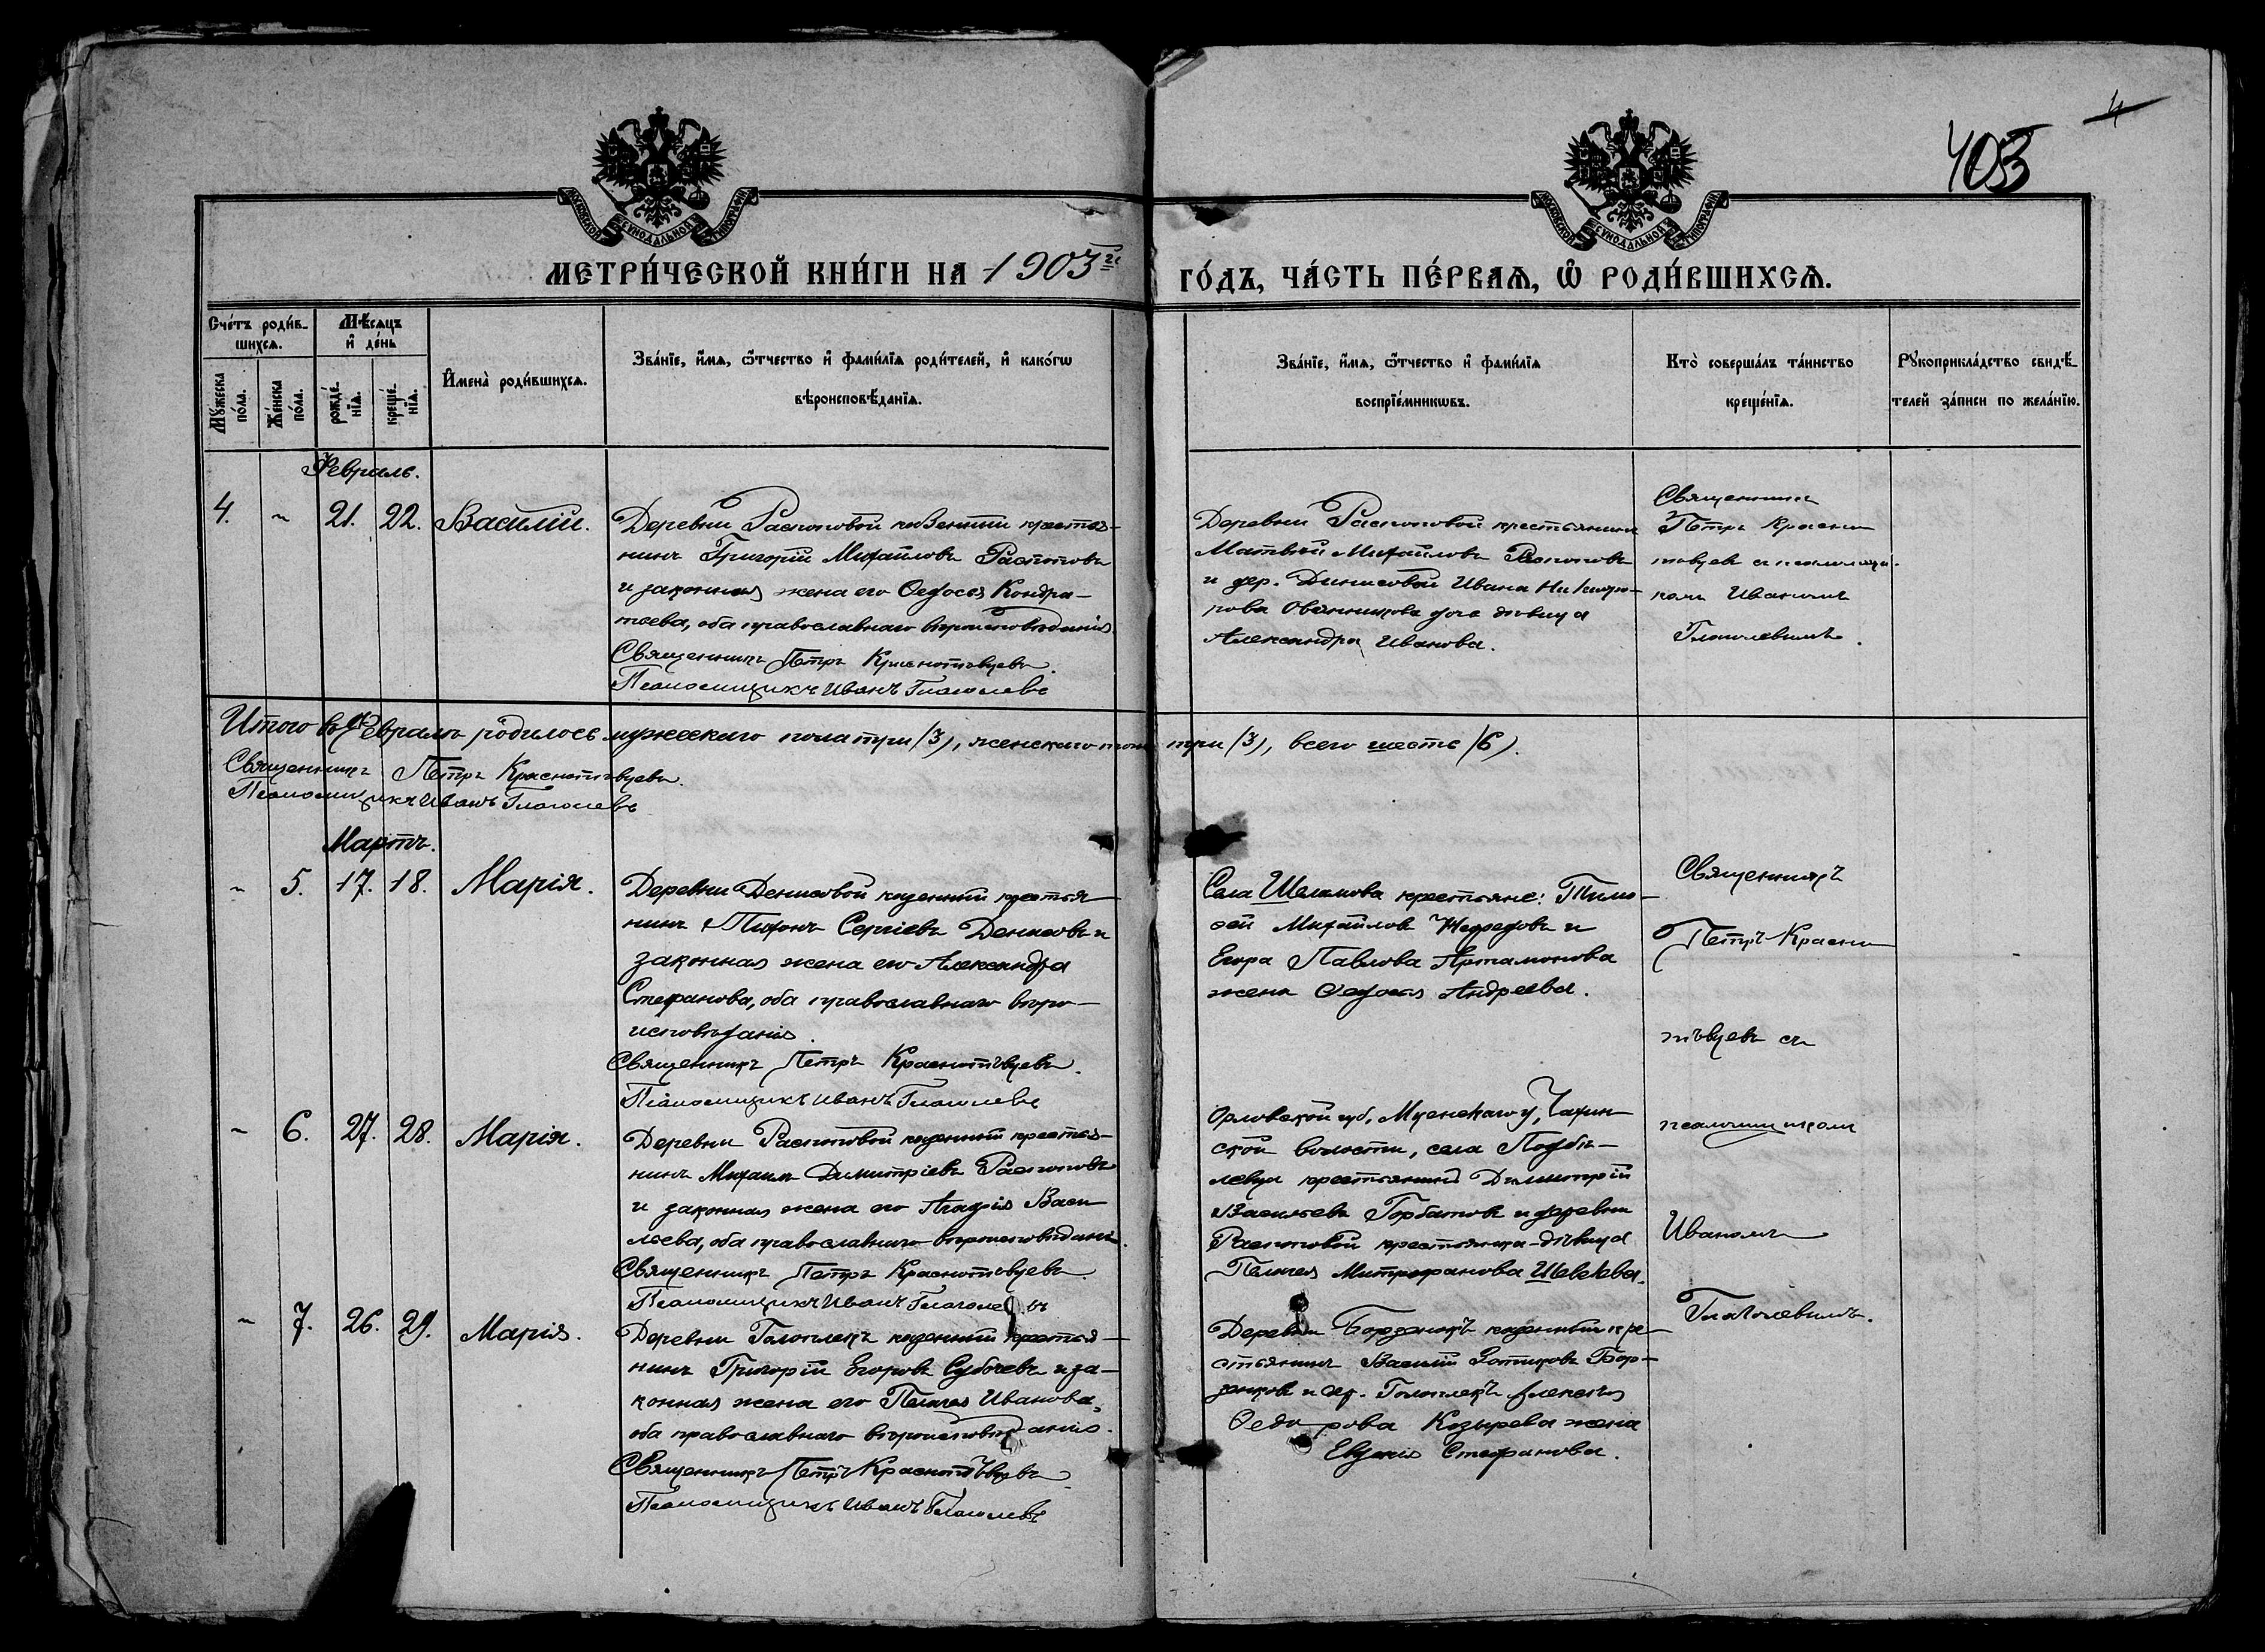 403
4
МОСКОВСКОЙ СѴНОДАЛЬНОЙ ТИПОГРАФІИ
МОСКОВСКОЙ СѴНОДАЛЬНОЙ ТИПОГРАФІИ
МЕТРИ́ЧЕСКОЙ КНИ́ГИ НА 1903й ГО́ДЪ, ЧА́СТЬ ПЕ́РВАѦ, Ѡ РОДИ́ВШИХСѦ.
Сче́тъ роди́в-
шихсѧ.
Мѣ́сѧцъ
и де́нь
Мꙋ́жеска
по́ла.
Же́нска
по́ла.
рожде́-
нїѧ.
креще́-
нїѧ.
И҆мена̀ роди́вшихсѧ.
Зва́нїе, и҆́мѧ, ѻ҆́тчество и҆ фами́лїѧ роди́телей, и҆ како́гѡ
вѣроисповѣ́данїѧ.
Зва́нїе, и҆́мѧ, ѻ҆́тчество и҆ фами́лїѧ
воспрїе́мникѡвъ.
Кто̀ соверша́лъ та́инство
креще́нїѧ.
Рꙋкоприкла́дство свидѣ́-
телей за́писи по жела́нїю.
Февраль.
4. ~ 21. 22. Василій.
Деревни Распоповой казенный крестья-
нинъ Григорій Михайловъ Распоповъ
и законная жена его Ѳедосья Кондра-
тьева, оба православнаго вѣроисповѣданія.
Священникъ Петръ Краснопѣвцевъ.
Псаломщикъ Иванъ Глаголевъ
Деревни Распоповой крестьянинъ
Матвѣй Михайловъ Распоповъ
и дер. Денисовой Ивана Никифо-
рова Овчинникова дочь дѣвица
Александра Иванова.
Священникъ
Петръ Красно
пѣвцевъ съ псаломщи-
комъ Иваномъ
Глаголевымъ.
Итого въ Февралѣ родилось мужескаго пола три (3), женскаго пола три (3), всего шесть (6).
Священникъ Петръ Краснопѣвцевъ.
Псаломщикъ Иванъ Глаголевъ
Мартъ.
~ 5. 17. 18. Марія.
Деревни Денисовой казенный крестья-
нинъ Тихонъ Сергіевъ Денисовъ и
законная жена его Александра
Стефанова, оба православнаго вѣро-
исповѣданія.
Священникъ Петръ Краснопѣвцевъ.
Псаломщикъ Иванъ Глаголевъ
Села Шеламова крестьяне: Тимо-
ѳей Михайловъ и
Егора Павлова Артамонова
жена Ѳедосья Андреева.
Священникъ
Петръ Красно
пѣвцевъ съ
псаломщикомъ
Иваномъ
Глаголевымъ.
~ 6. 27. 28. Марія.
Деревни Распоповой казенный крестья-
нинъ Михаилъ Димитріевъ Распоповъ
и законная жена его Агафія Васи
льева, оба православнаго вѣроисповѣданія.
Священникъ Петръ Краснопѣвцевъ.
Псаломщикъ Иванъ Глаголевъ
Орловской губ., Мценскаго у,
ской волости, села Подбѣ-
левца крестьянинъ Димитрій
Васильевъ Горбатовъ и деревни
Распоповой крестьянка-дѣвица
Пелагея Митрофанова
~ 7. 26. 29. Марія.
Деревни Голоплекъ казенный крестья-
нинъ Григорій Егоровъ Субочевъ и за-
конная жена его Пелагея Иванова,
оба православнаго вѣроисповѣданія.
Священникъ Петръ Краснопѣвцевъ
Псаломщикъ Иванъ Глаголевъ
Деревни казенный кре-
стьянинъ Василій Зотиковъ Бор-
зенковъ и дер. Голоплекъ Алексѣя
Ѳедорова Козырева жена
Евдокія Стефанова.